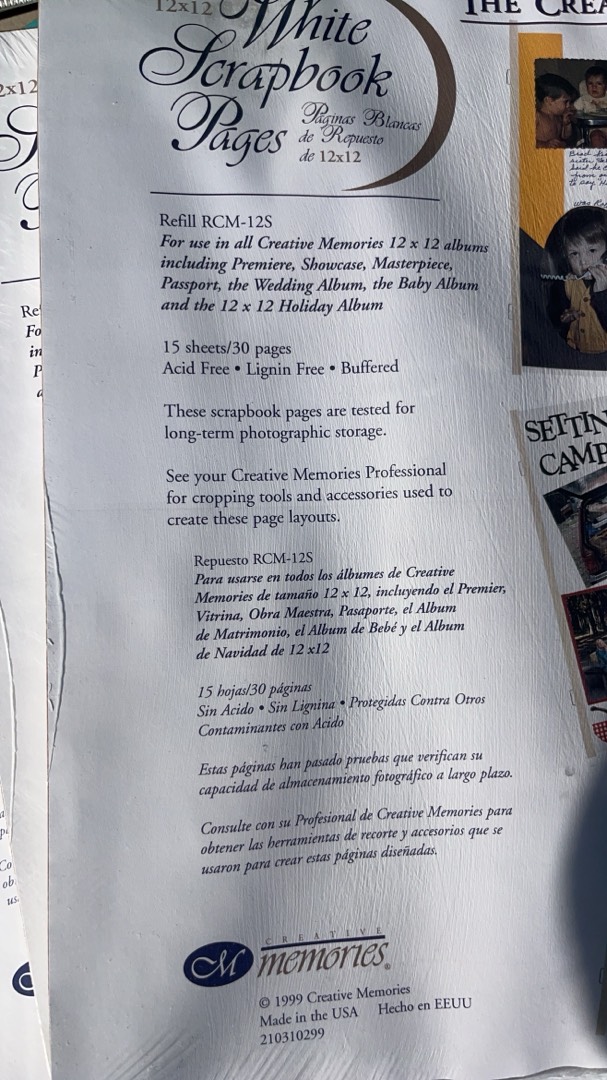 12x12
White
Scrapbook
Pages
Páginas Blancas
de Repuesto
de 12x12
Refill RCM-12S
For use in all Creative Memories 12 x 12 albums
including Premiere, Showcase, Masterpiece,
Passport, the Wedding Album, the Baby Album
and the 12 x 12 Holiday Album
15 sheets/30 pages
Acid Free • Lignin Free • Buffered
These scrapbook pages are tested for
long-term photographic storage.
See your Creative Memories Professional
for cropping tools and accessories used to
create these page layouts.
Repuesto RCM-12S
Para usarse en todos los álbumes de Creative
Memories de tamaño 12 x 12, incluyendo el Premier,
Vitrina, Obra Maestra, Pasaporte, el Album
de Matrimonio, el Album de Bebé y el Album
de Navidad de 12 x12
15 hojas/30 páginas
Sin Acido • Sin Lignina • Protegidas Contra Otros
Contaminantes con Acido
Estas páginas han pasado pruebas que verifican su
capacidad de almacenamiento fotográfico a largo plazo.
Consulte con su Profesional de Creative Memories para
obtener las herramientas de recorte y accesorios que se
usaron para crear estas páginas diseñadas.
CM CREATIVE
memories®
© 1999 Creative Memories
Made in the USA Hecho en EEUU
210310299
THE CREA
SETTIN
CAMP